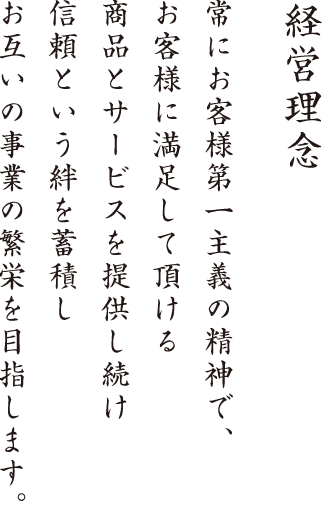 経営理念
常にお客様第一主義の精神で、
お客様に満足して頂ける
商品とサービスを提供し続け
信頼という絆を蓄積し
お互いの事業の繁栄を目指します。